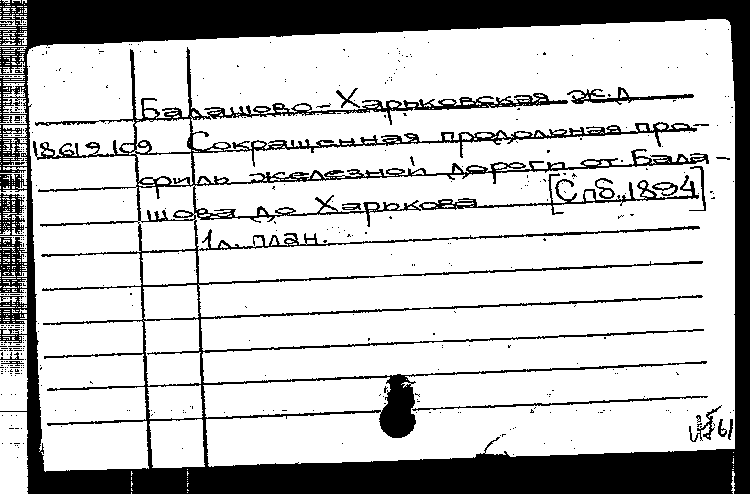 Балашово-Харьковская ж.д
18.61.9.109 Сокращенная продольная про-
филь железной дороги от Бала-
шова до Харькова [Спб., 1894].
1л. план.